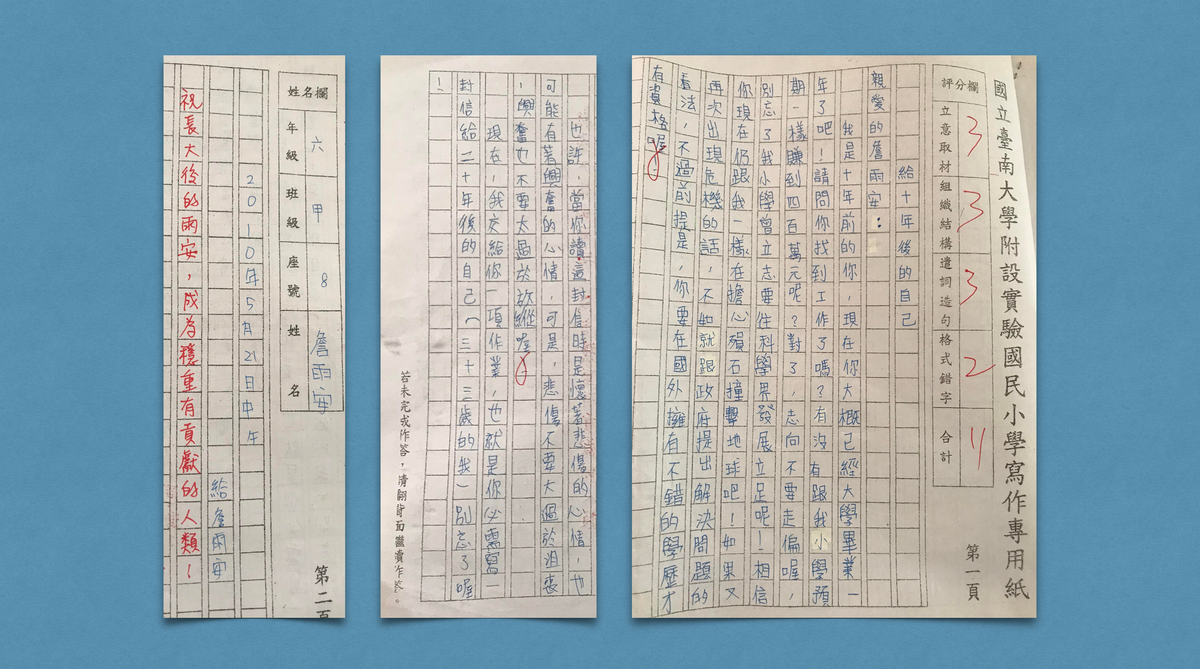 國立臺南大學附設實驗國民小學寫作專用紙
第一頁
評分欄
立意取材
3
組織結構
3
遣詞造句
3
格式錯字
2
合計
11
給十年後的自己
親愛的詹雨安：
我是十年前的你，現在你大概已經大學畢業一
年了吧！請問你找到工作了嗎？有沒有跟我小學預
期一樣賺到四百萬元呢？對了，志向不要走偏喔，
別忘了我小學曾立志要往科學界發展立足呢！相信
你現在仍跟我一樣在擔心殞石撞擊地球吧！如果又
再次出現危機的話，不如就跟政府提出解決問題的
看法，不過前提是，你要在國外擁有不錯的學歷才
有資格喔。
也許，當你讀這封信時是懷著悲傷的心情，也
可能有著興奮的心情，可是，悲傷不要太過於沮喪
，興奮也不要太過於放縱喔。
現在，我交給你一項作業，也就是你必需寫一
封信給二十年後的自己（三十三歲的我）別忘了喔
！
若未完成作答，請翻背面繼續作答。
第二頁
姓名欄
六年級
甲班級
8座號
姓名
詹雨安
2010年5月21日中午
給詹雨安
祝長大後的雨安，成為穩重有貢獻的人類！